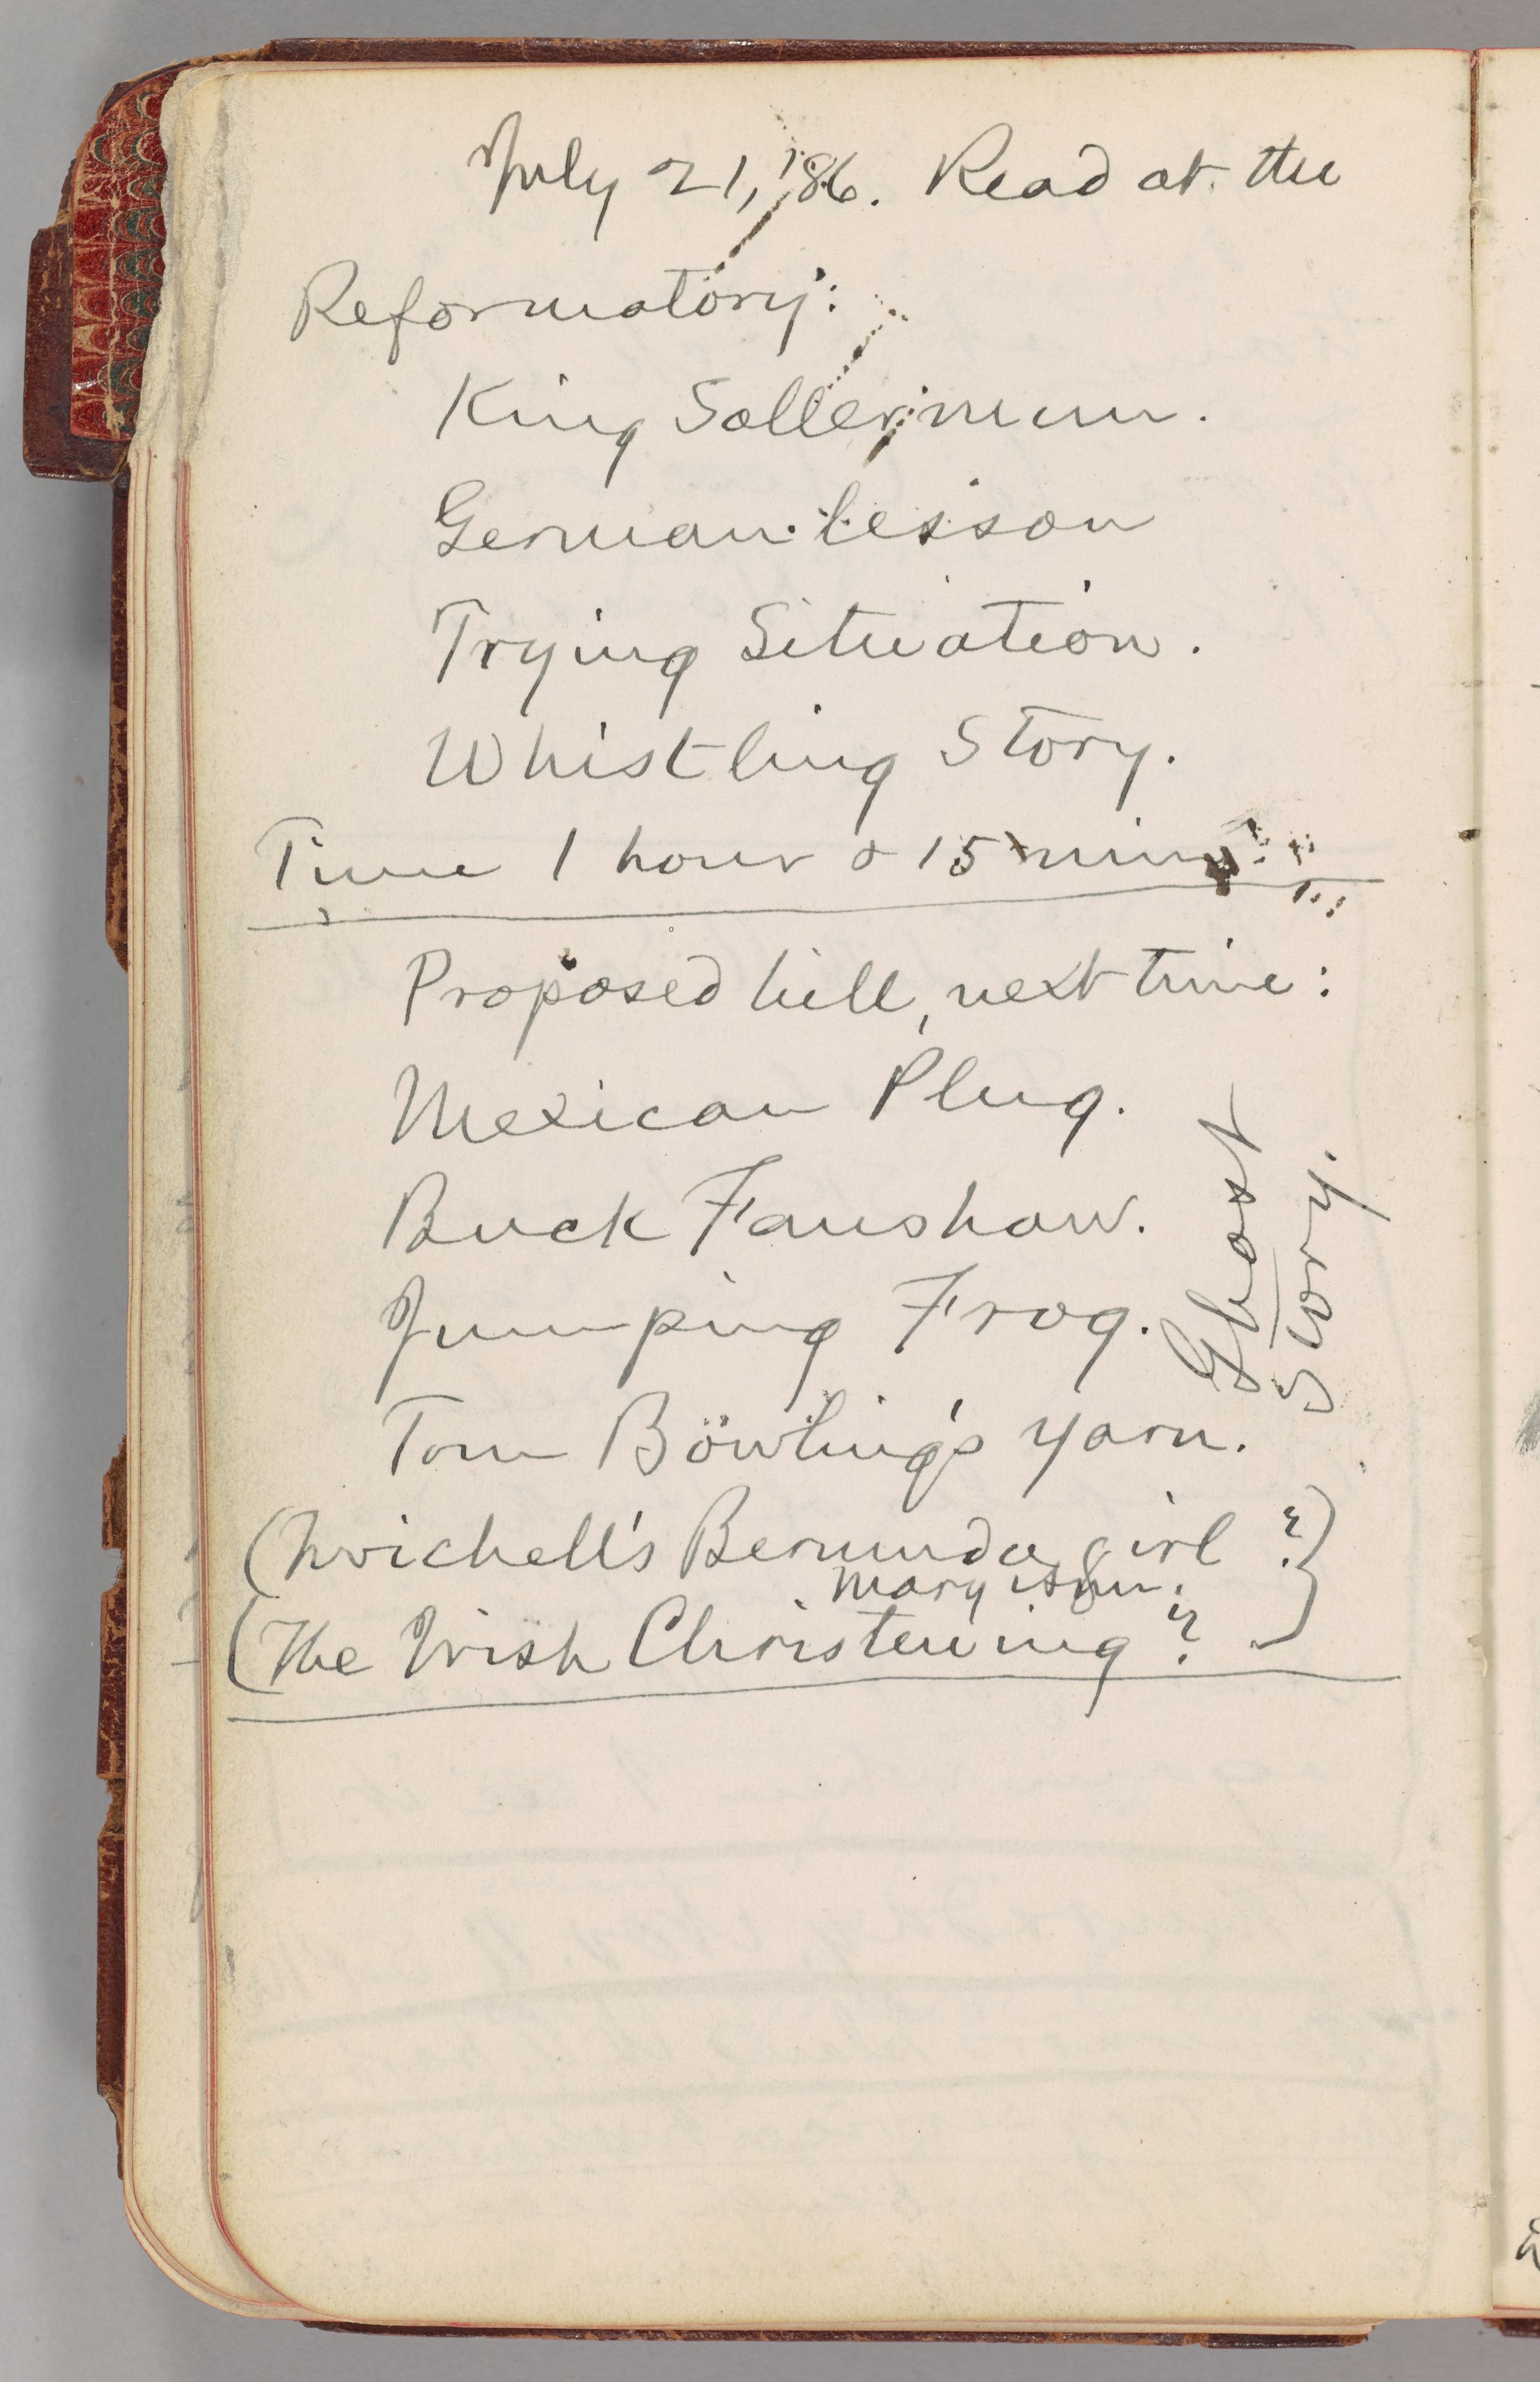 July 21, '86. Read at the
Reformatory:
King Sollermun.
German Lesson
Trying Situation.
Whistling Story.
Time 1 hour & 15 min
Proposed bill, next time:
Mexican Plug.
Buck Fanshaw.
Jumping Frog.
Ghost
Story.
Tom Bowling's yarn.
(Twichell's Bermuda girl ?)
Mary Ann.
(The Irish Christening ?